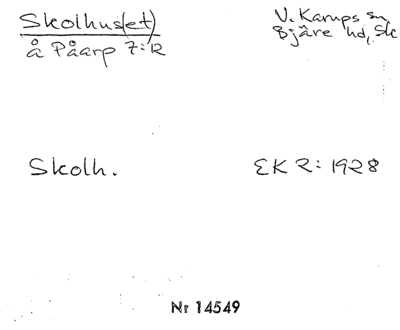 Skolhus(et)
å Påarp 7:12
V. Karups sn
Bjäre hd, Sk
Skolh.
EK 2: 1928
Nr 14549